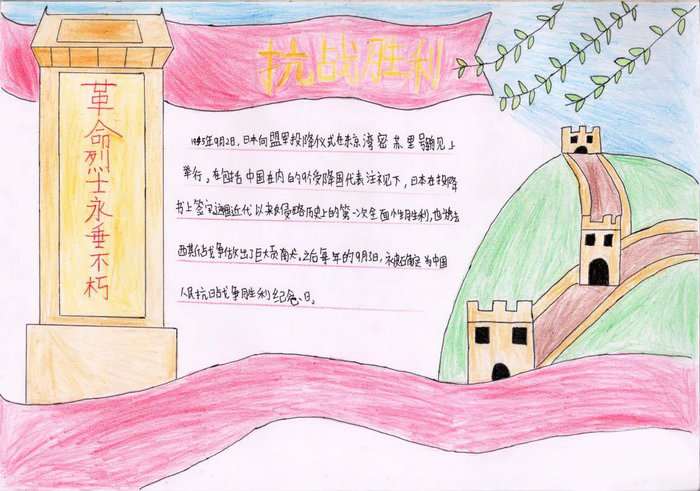 抗战胜利
革命烈士永垂不朽
1945年9月2日,日本向盟军投降仪式在东京湾密苏里号舰上
举行。在包括中国在内的9个受降国代表注视下,日本在投降
书上签字。近代以来侵略历史上的第一次全面胜利,也为
西斯战争做出了巨大贡献,之后每年的9月3日,被确定为中国
人民抗日战争胜利纪念日。